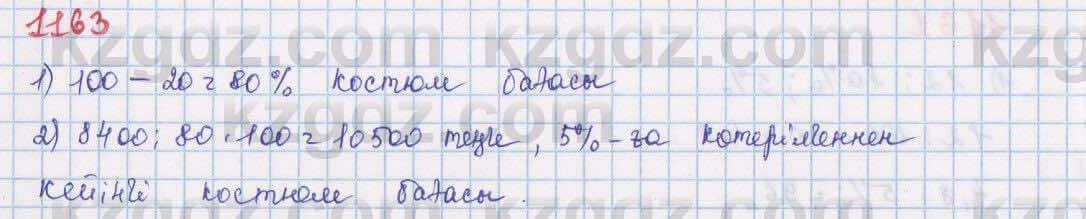 1163
1) 100 - 20 = 80% костюм бағасы
2) 8400 : 80 · 100 = 10500 теңге, 5%-ға көтерілгеннен
кейінгі костюм бағасы.
kzgdz.com kzgdz.com